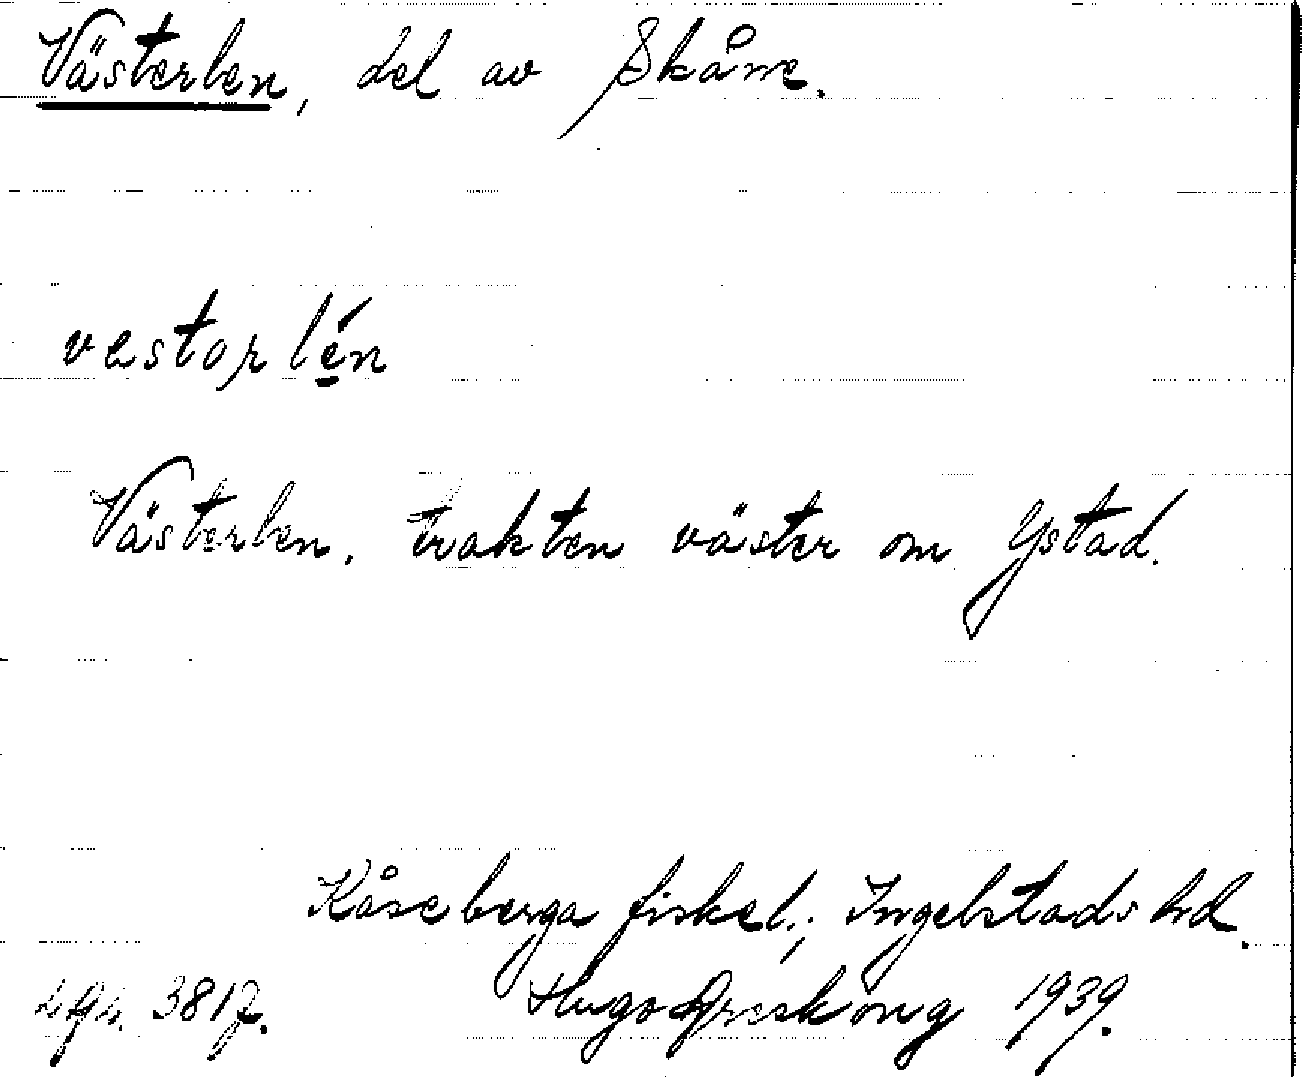 Västerlen, del av Skåne.
vestorlén
Västerlen, trakten väster om Ystad.
Kåseberga fiskel.; Ingelstads hd.
3817. Hugo Areskoug 1939.